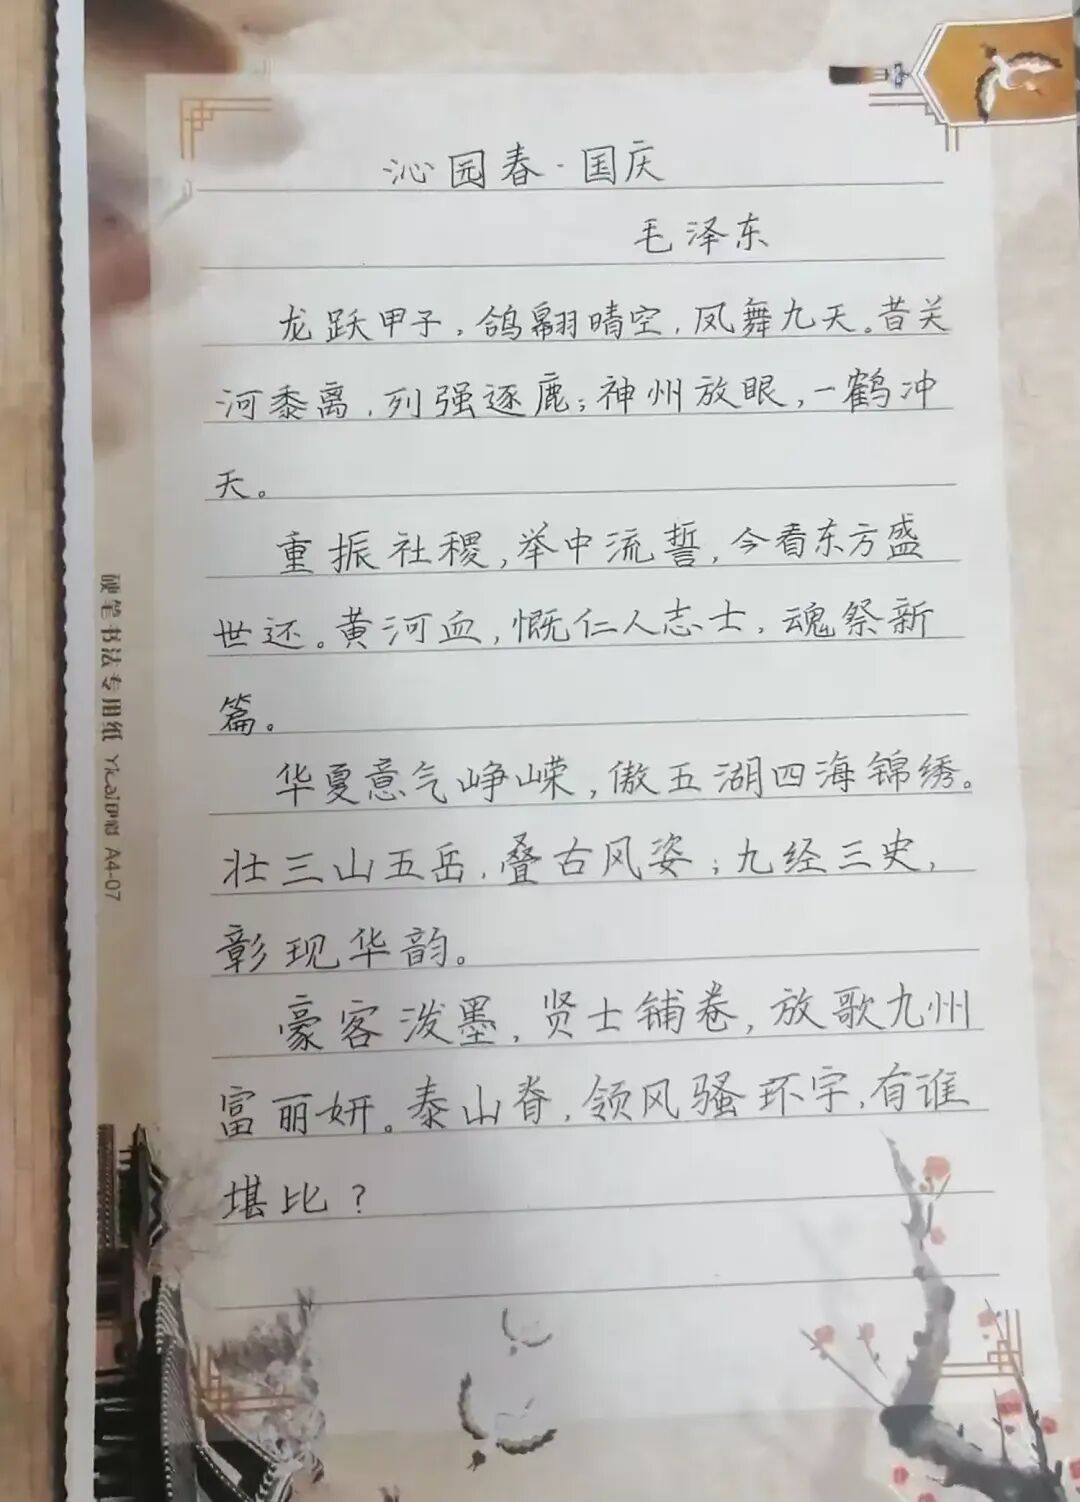 沁园春·国庆
毛泽东
龙跃甲子，鸽翱晴空，凤舞九天。昔关
河黍离，列强逐鹿；神州放眼，一鹤冲
天。
重振社稷，举中流誓，今看东方盛
世还。黄河血，慨仁人志士，魂祭新
篇。
华夏意气峥嵘，傲五湖四海锦绣。
壮三山五岳，叠古风姿；九经三史，
彰现华韵。
豪客泼墨，贤士铺卷，放歌九州
富丽妍。泰山脊，领风骚环宇，有谁
堪比？
硬笔书法专用纸 A4-07